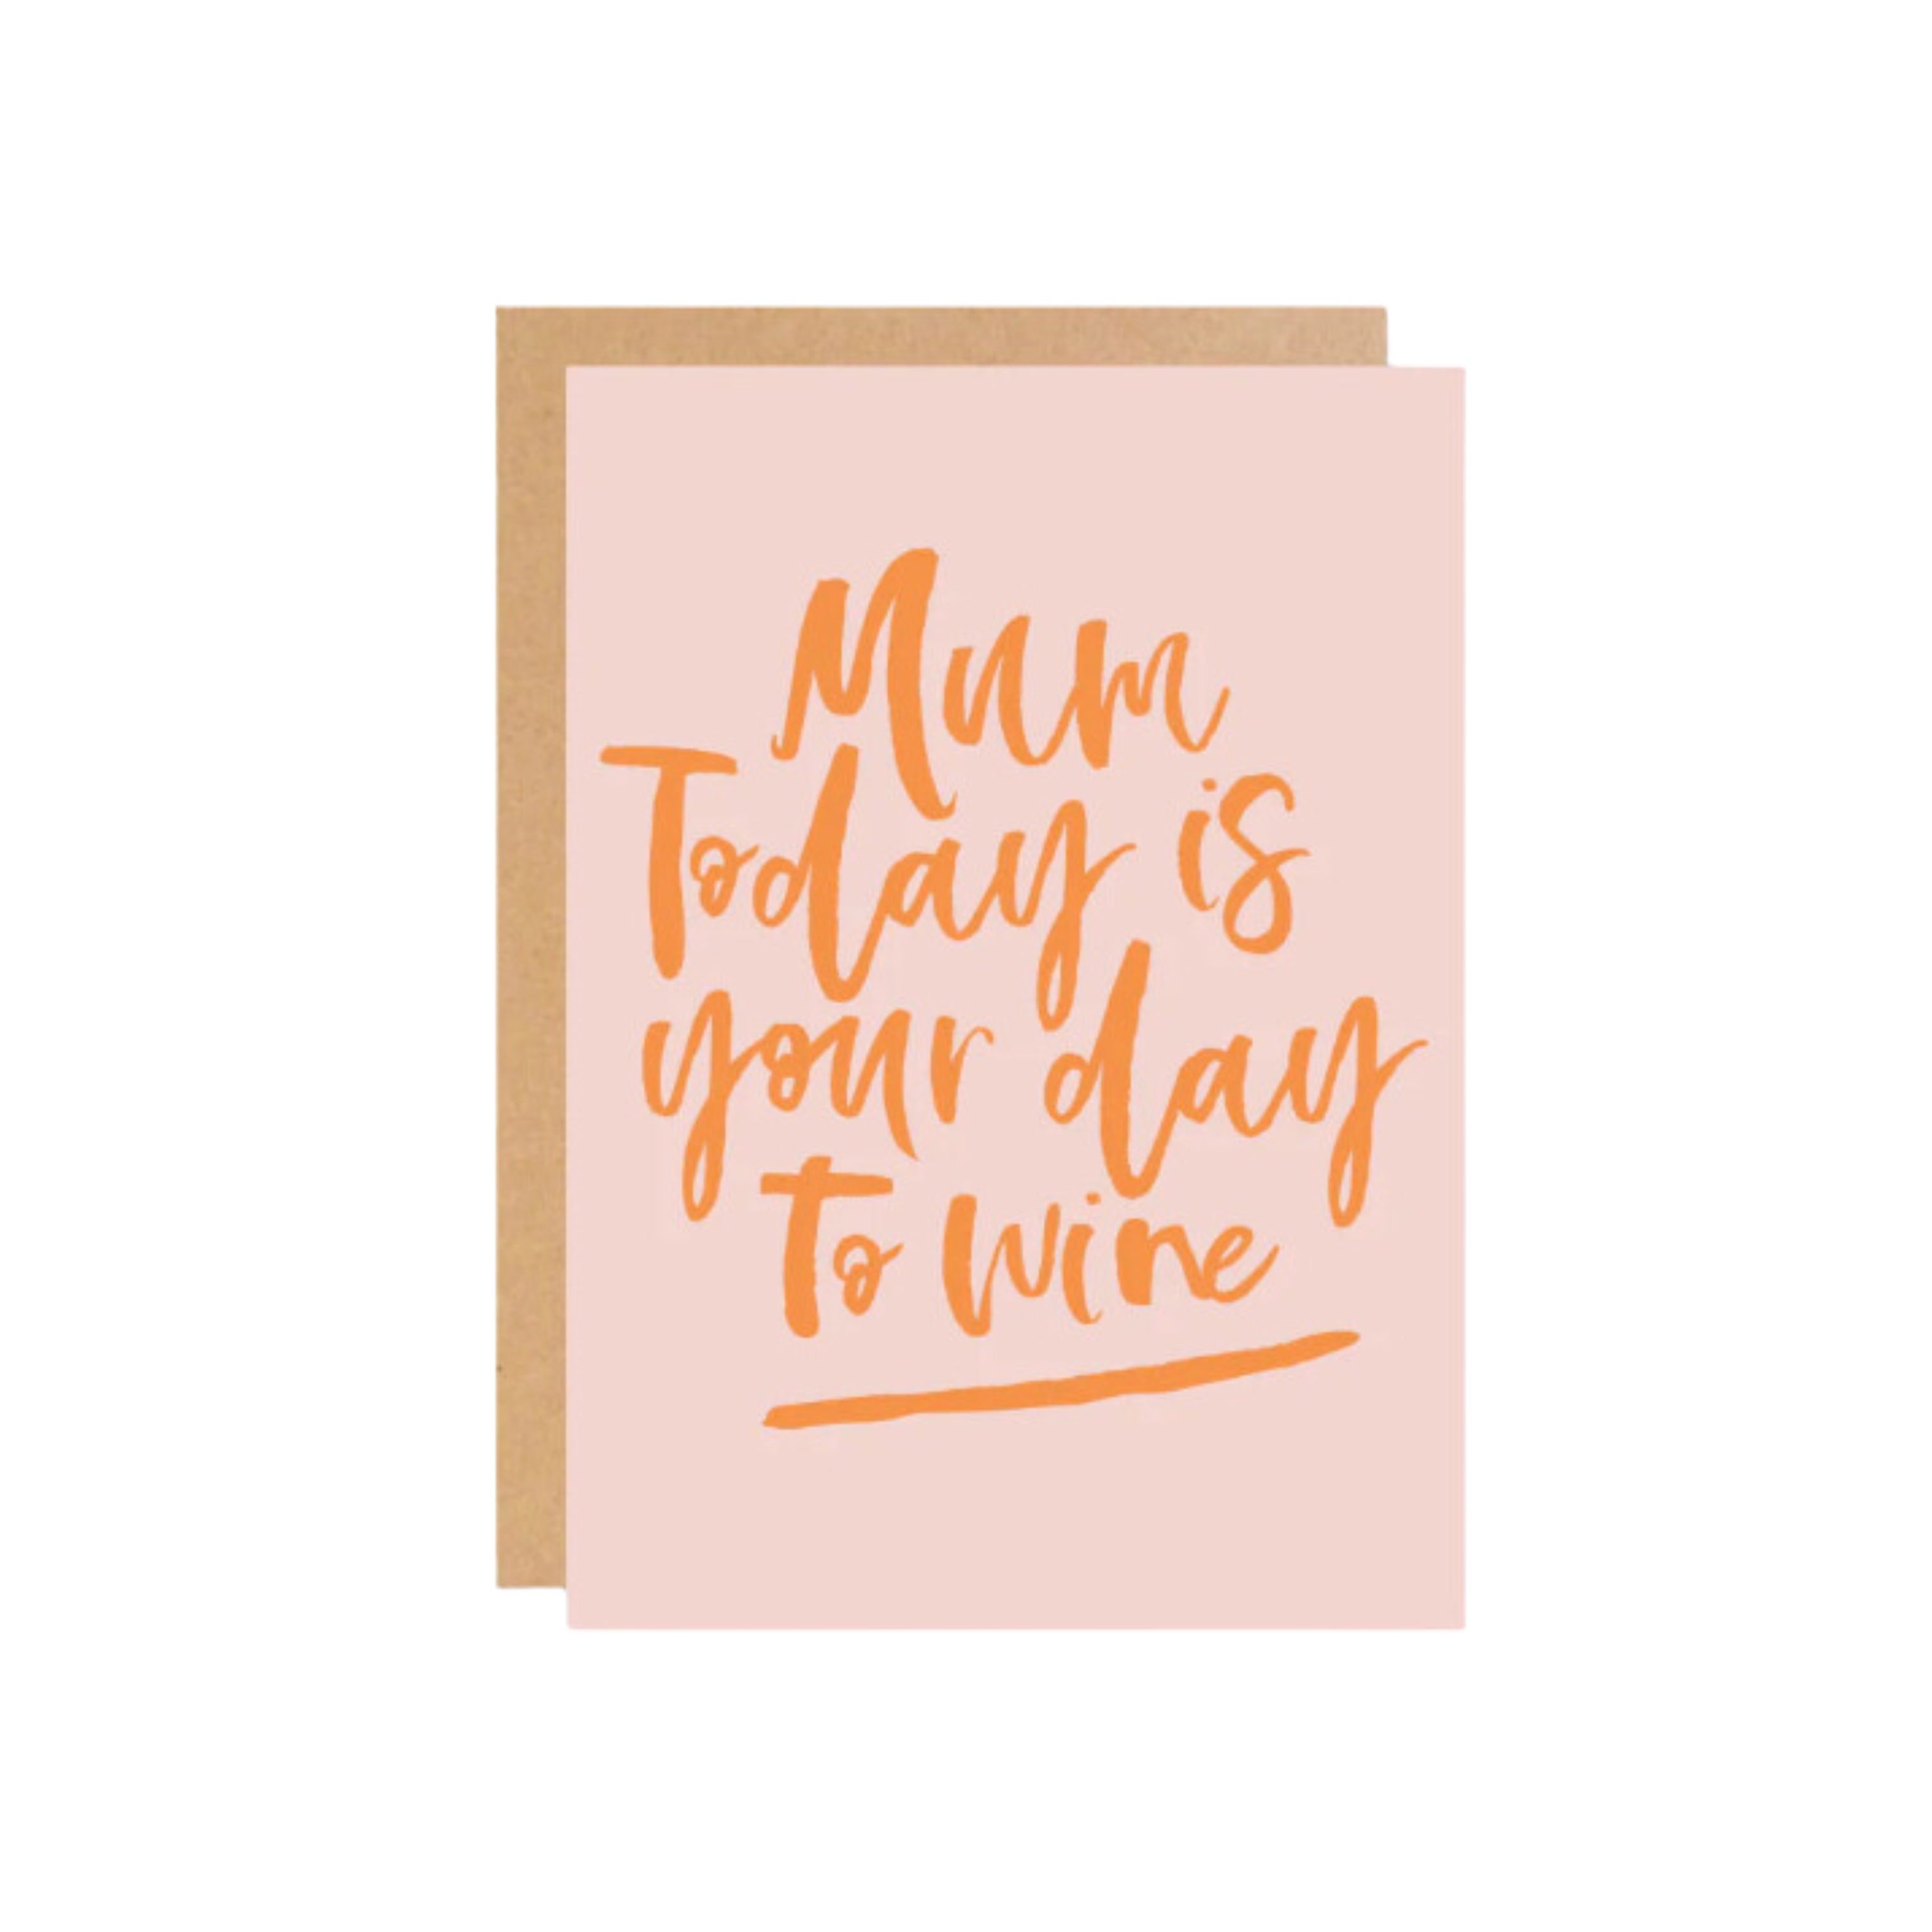 Mum
Today is
your day
to wine